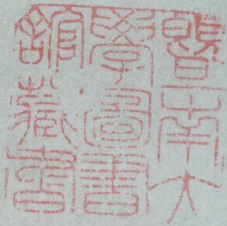 暨南大
學圖書
館藏書